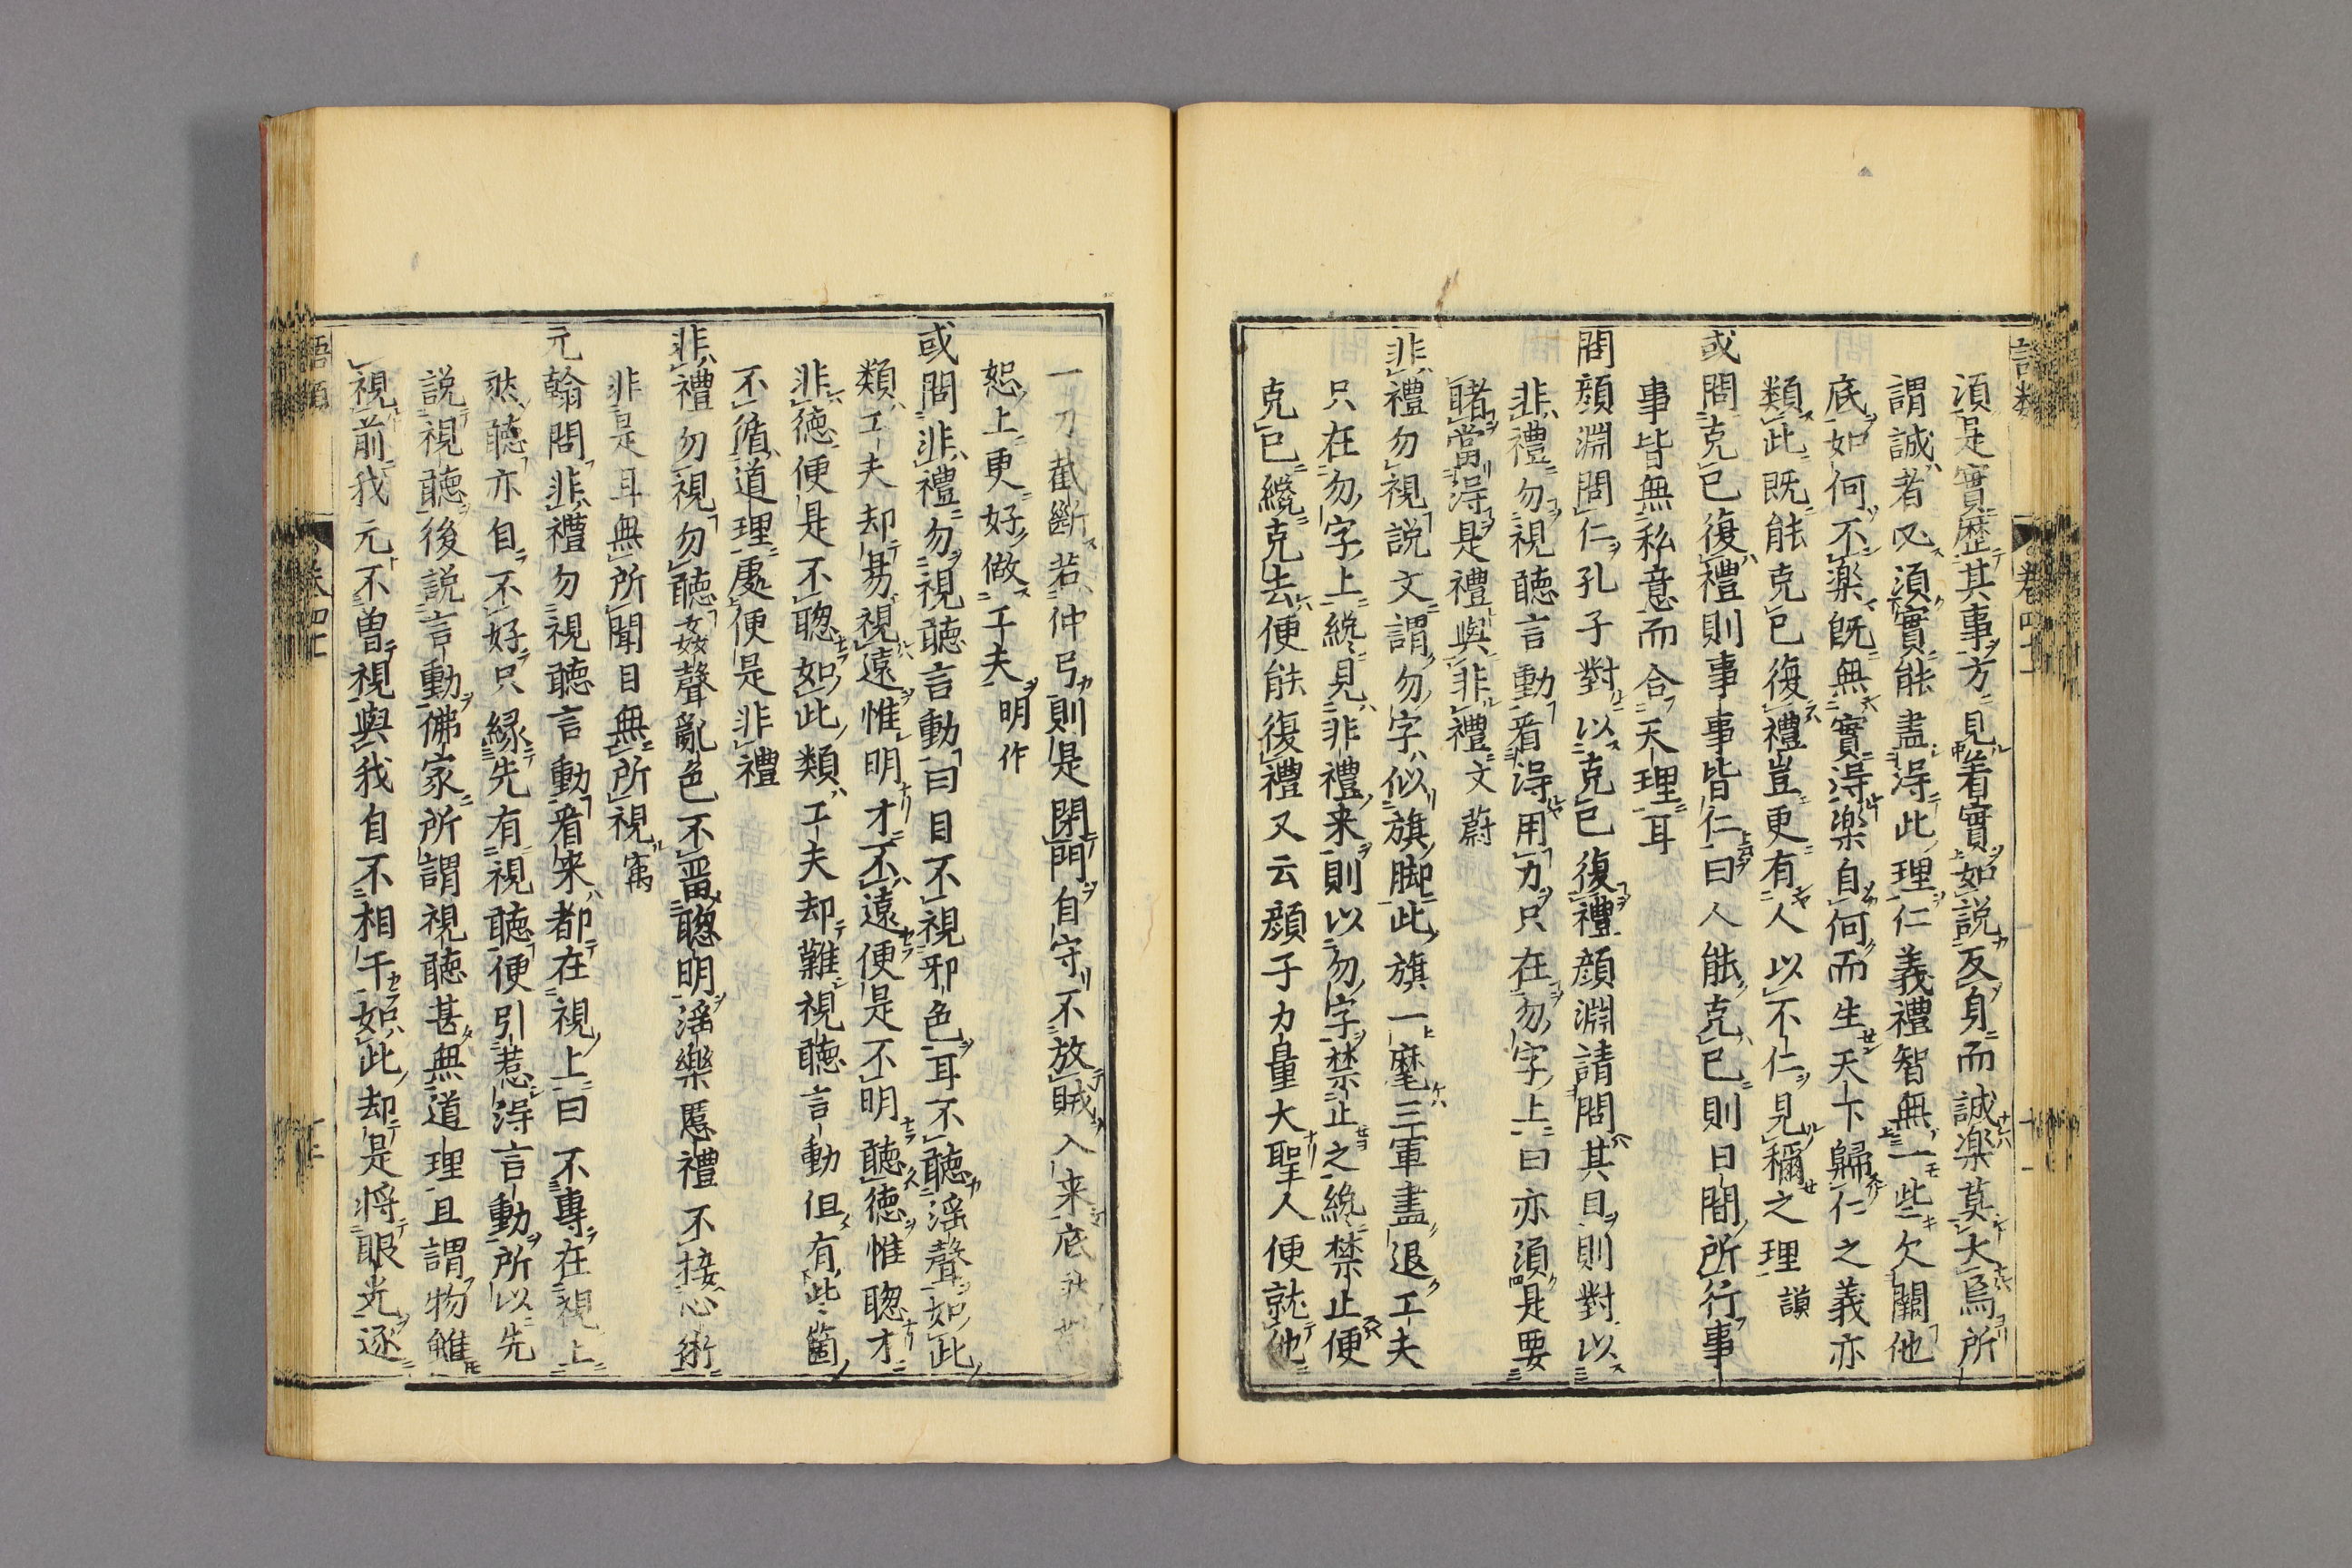 語類
卷四十一
須是實歷其事方見着實如說反身而誠楽莫大焉所
謂誠者又須實能盡得此理仁義禮智無一些欠闕他
底如何不楽既無實得楽自何而生天下歸仁之義亦
類此既能克已復禮豈更有人以不仁見稱之理謨
或問克已復禮則事事皆仁曰人能克已則日間所行事
事皆無私意而合天理耳
問顔淵問仁孔子對以克已復禮顔淵請問其目則對以
非禮勿視聴言動看得用力只在勿字上曰亦須是要
睹當得是禮與非禮文蔚
非禮勿視說文謂勿字似旗脚此旗一麾三軍盡退工夫
只在勿字上纔見非禮来則以勿字禁止之纔禁止便
克已纔克去便能復禮又云顔子力量大聖人便就他
一刀截斷若仲弓則是閉門自守不放賊入来底
恕上更好做工夫明作
或問非禮勿視聴言動曰目不視邪色耳不聴淫聲如此
類工夫却易視遠惟明才不遠便是不明聴德惟聰才
非德便是不聰如此類工夫却難視聴言動但有些箇
不循道理處便是非禮
非禮勿視勿聴姦聲亂色不畱聰明淫樂慝禮不接心術
非是耳無所聞目無所視㝢
元翰問非禮勿視聴言動看来都在視上曰不專在視上
然聴亦自不好只緣先有視聴便引惹得言動所以先
說視聴後說言動佛家所謂視聴甚無道理且謂物雖
視前我元不曽視與我自不相干如此却是将眼光逐
語類
卷四十一